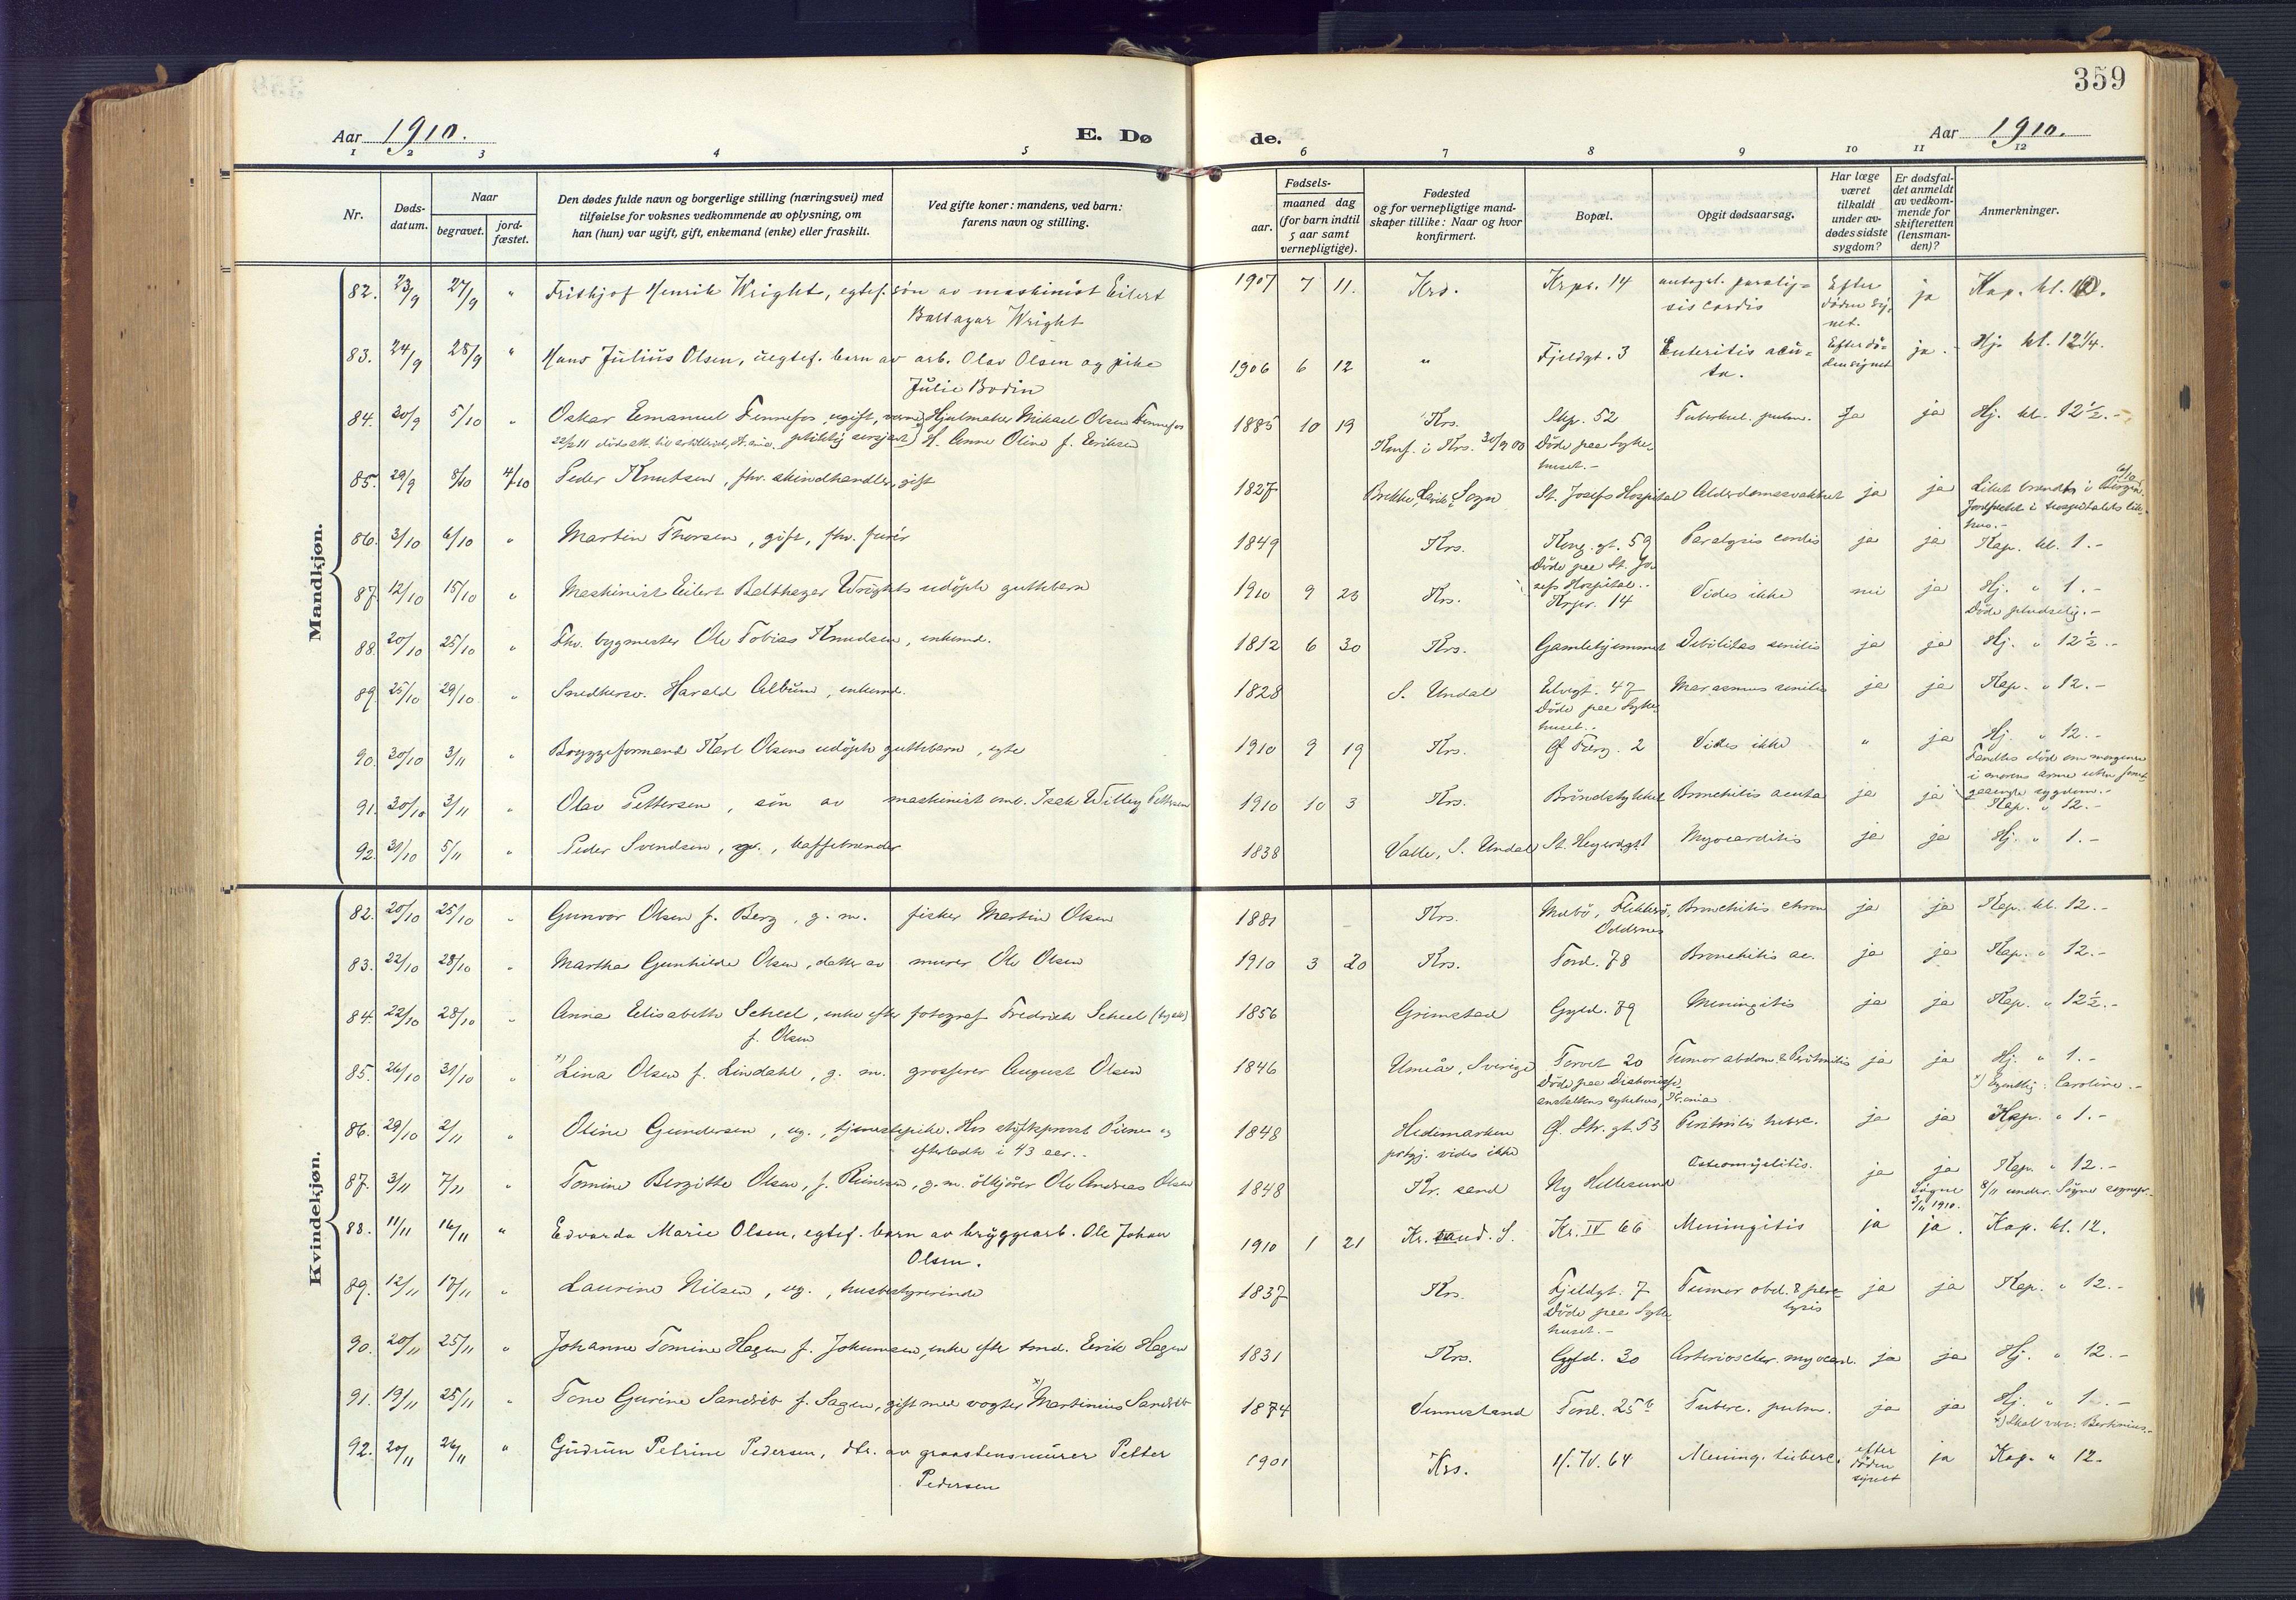 359
Aar 1910.
E. Dø
de.
Aar 1910.
1 2 3 4 5 6 7 8 9 10 11 12
Nr.
Døds-datum.
Naar
begravet.
jord-fæstet.
Den dødes fulde navn og borgerlige stilling (næringsvei) med
tilføielse for voksnes vedkommende av oplysning, om
han (hun) var ugift, gift, enkemand (enke) eller fraskilt.
Ved gifte koner: mandens, ved barn:
farens navn og stilling.
Fødsels-
aar.
maaned dag
(for barn indtil
5 aar samt
vernepligtige).
Fødested
og for vernepligtige mand-
skaper tillike: Naar og hvor
konfirmert.
Bopæl.
Opgit dødsaarsag.
Har læge
været
tilkaldt
under av-
dødes sidste
sygdom?
Er dødsfal-
det anmeldt
av vedkom-
mende for
skifteretten
(lensman-
den)?
Anmerkninger.
Mandkjøn.
82. 23/9 27/9 " Frithjof Henrik Wright, egtef. søn av maskinist Eilert 1907 7 11. Krs. Krpr. 14 paraly- Efter ja Kap. kl. 12.
Baltazar Wright sis cordis døden sy-
net.
83. 24/9 28/9 " Hans Julius Olsen, uegtef. barn av arb. Olav Olsen og pike 1906 6 12 " Fjeldgt. 3 Enteritis acu- Efter dø- ja. Hj. kl. 12 1/4.
Julie Bodin ta. den synet
84. 30/9 5/10 " Oskar Emanuel Fennefos, ugift, Hjulmaker Mikael Olsen Fennefos 1885 10 19 Krs. Skp. 52 Tuberkul. pulm. Ja ja Hj. kl. 12 1/2.-
sersjant H. Anne Oline f. Eriksen Konf. i Krs. 30/9 00 Døde paa Syke-
huset.-
85. 29/9 8/10 4/10 Peder Knutsen, fhv. skindhandler, gift 1827 Brekke, Sogn St. Josefs Hospital Alderdomssvakhet ja ja Liket brændt i Bergen
Jordfæstet i hospitalets lik-
hus.-
86. 3/10 6/10 " Martin Thorsen, gift, fhv. furér 1849 Krs. Kong. gt. 59 Paralysis cordis ja ja Kap. kl. 1.-
Døde paa St. Jo-
sefs Hospital.-
87. 12/10 15/10 " Maskinist Eilert Balthazar Wrights udøpte guttebarn 1910 9 23 Krs. Krpr. 14 Vides ikke nei ja Hj. " 1.-
Døde pludselig.-
88. 20/10 25/10 " Fhv. bygmester Ole Tobias Knudsen, enkemd. 1812 6 30 Krs. Gamlehjemmet Debilitas senilis ja ja Hj. " 12 1/2.-
89. 25/10 29/10 " Snedkersv. Harald Album, enkemd. 1828 S. Undal Elvegt. 47 Marasmus senilis ja ja Kap. " 12.-
Døde paa Syke-
huset.-
90. 30/10 3/11 " Bryggeformand Karl Olsens udøpte guttebarn, egte 1910 9 19 Krs. 2 Vides ikke " ja Hj. " 12.-
Fandtes død om morgenen
i morens arme uten forut-
gaaende sygdom.-
91. 30/10 3/11 " Olav Pettersen, søn av maskinist omb. Isak Willy Pettersen 1910 10 3 Krs. Brøndstykket Bronchitis acuta ja ja Kap. " 12.-
92. 31/10 5/11 " Peder Svendsen, kaffebrænder 1838 Valle, S. Undal Myocarditis ja ja Hj. " 1.-
Kvindekjøn.
82. 20/10 25/10 " Gunvor Olsen f. Berg, g. m. fisker Martin Olsen 1881 Krs. Mæbø, Flekkerø, Bronchitis chron ja ja Kap. kl. 12.-
Oddernes
83. 22/10 28/10 " Martha Gunhilde Olsen, datter av murer Ole Olsen 1910 3 20 Krs. Tord. 78 Bronchitis ac. ja ja Kap. " 12.-
84. 22/10 28/10 " Anna Elisabeth Scheel, enke efter fotograf Fredrick Scheel 1856 Grimstad Gyld. 79 Meningitis ja ja Kap. " 12 1/2.-
f. Olsen
85. 26/10 31/10 " x) Lina Olsen f. Lindahl, g. m. grosserer August Olsen 1846 Umeå, Sverige Torvet 20 Tumor abdom. & Peritonitis ja ja Hj. " 1.-
Døde paa Diakonisse- x) Egentlig: Caroline.-
anstaltens sykehus, Kr.ania
86. 29/10 2/11 " Oline Gundersen, ug., tjenestepike. Hos stiftsprovst 1848 Hedemarken Ø. Str. gt. 53 Peritonitis tuberc. ja ja Kap. " 1.-
efterladte i 43 aar.. vides ikke
87. 3/11 7/11 " Tomine Bergitte Olsen, f. Reinersen, g. m. Ole Andreas Olsen 1848 Kr. sand Ny Hellesund Osteomyelitis. ja ja Kap. " 12.-
Søgne 8/11 under. Søgne sognepr.
3/11 1910.
88. 11/11 16/11 " Edvarda Marie Olsen, egtef. barn av bryggearb. Ole Johan 1910 1 21 Kr. sand. S. Kr. IV 66 Meningitis ja ja. Kap. kl. 12.
Olsen.
89. 12/11 17/11 " Laurine Nilsen, ug., husbestyrerinde 1837 Krs. Fjeldgt. 7 Tumor abd. & para- ja ja Kap. " 12.-
Døde paa Syke- lysis
huset.-
90. 20/11 25/11 " Johanne Tomine Hagen f. Johnsen, enke efter tmd. Eirik Hagen 1831 Krs. Gyld. 30 Arterioscler. myocard. ja ja Hj. " 12.-
91. 19/11 25/11 " Tone Gurine Sandrib f. Sagen, gift med vogter x) Martinius Sandrib 1874 Vennesland Tord. 25 b Tuberc. pulm. ja ja Hj. " 1.-
x) Skal være: Bertinius.-
92. 20/11 26/11 " Gudrun Petrine Pedersen, dtr. av graastensmurer Petter 1901 Krs. H. IV. 64 Mening. tuberc. efter ja Kap. " 12.
Pedersen døden
synet